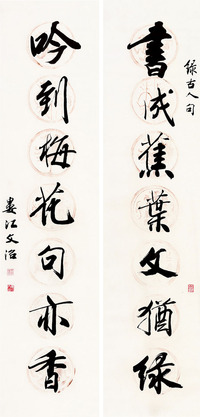 書成蕉葉文猶綠
錄古人句
吟到梅花句亦香
婁江文治